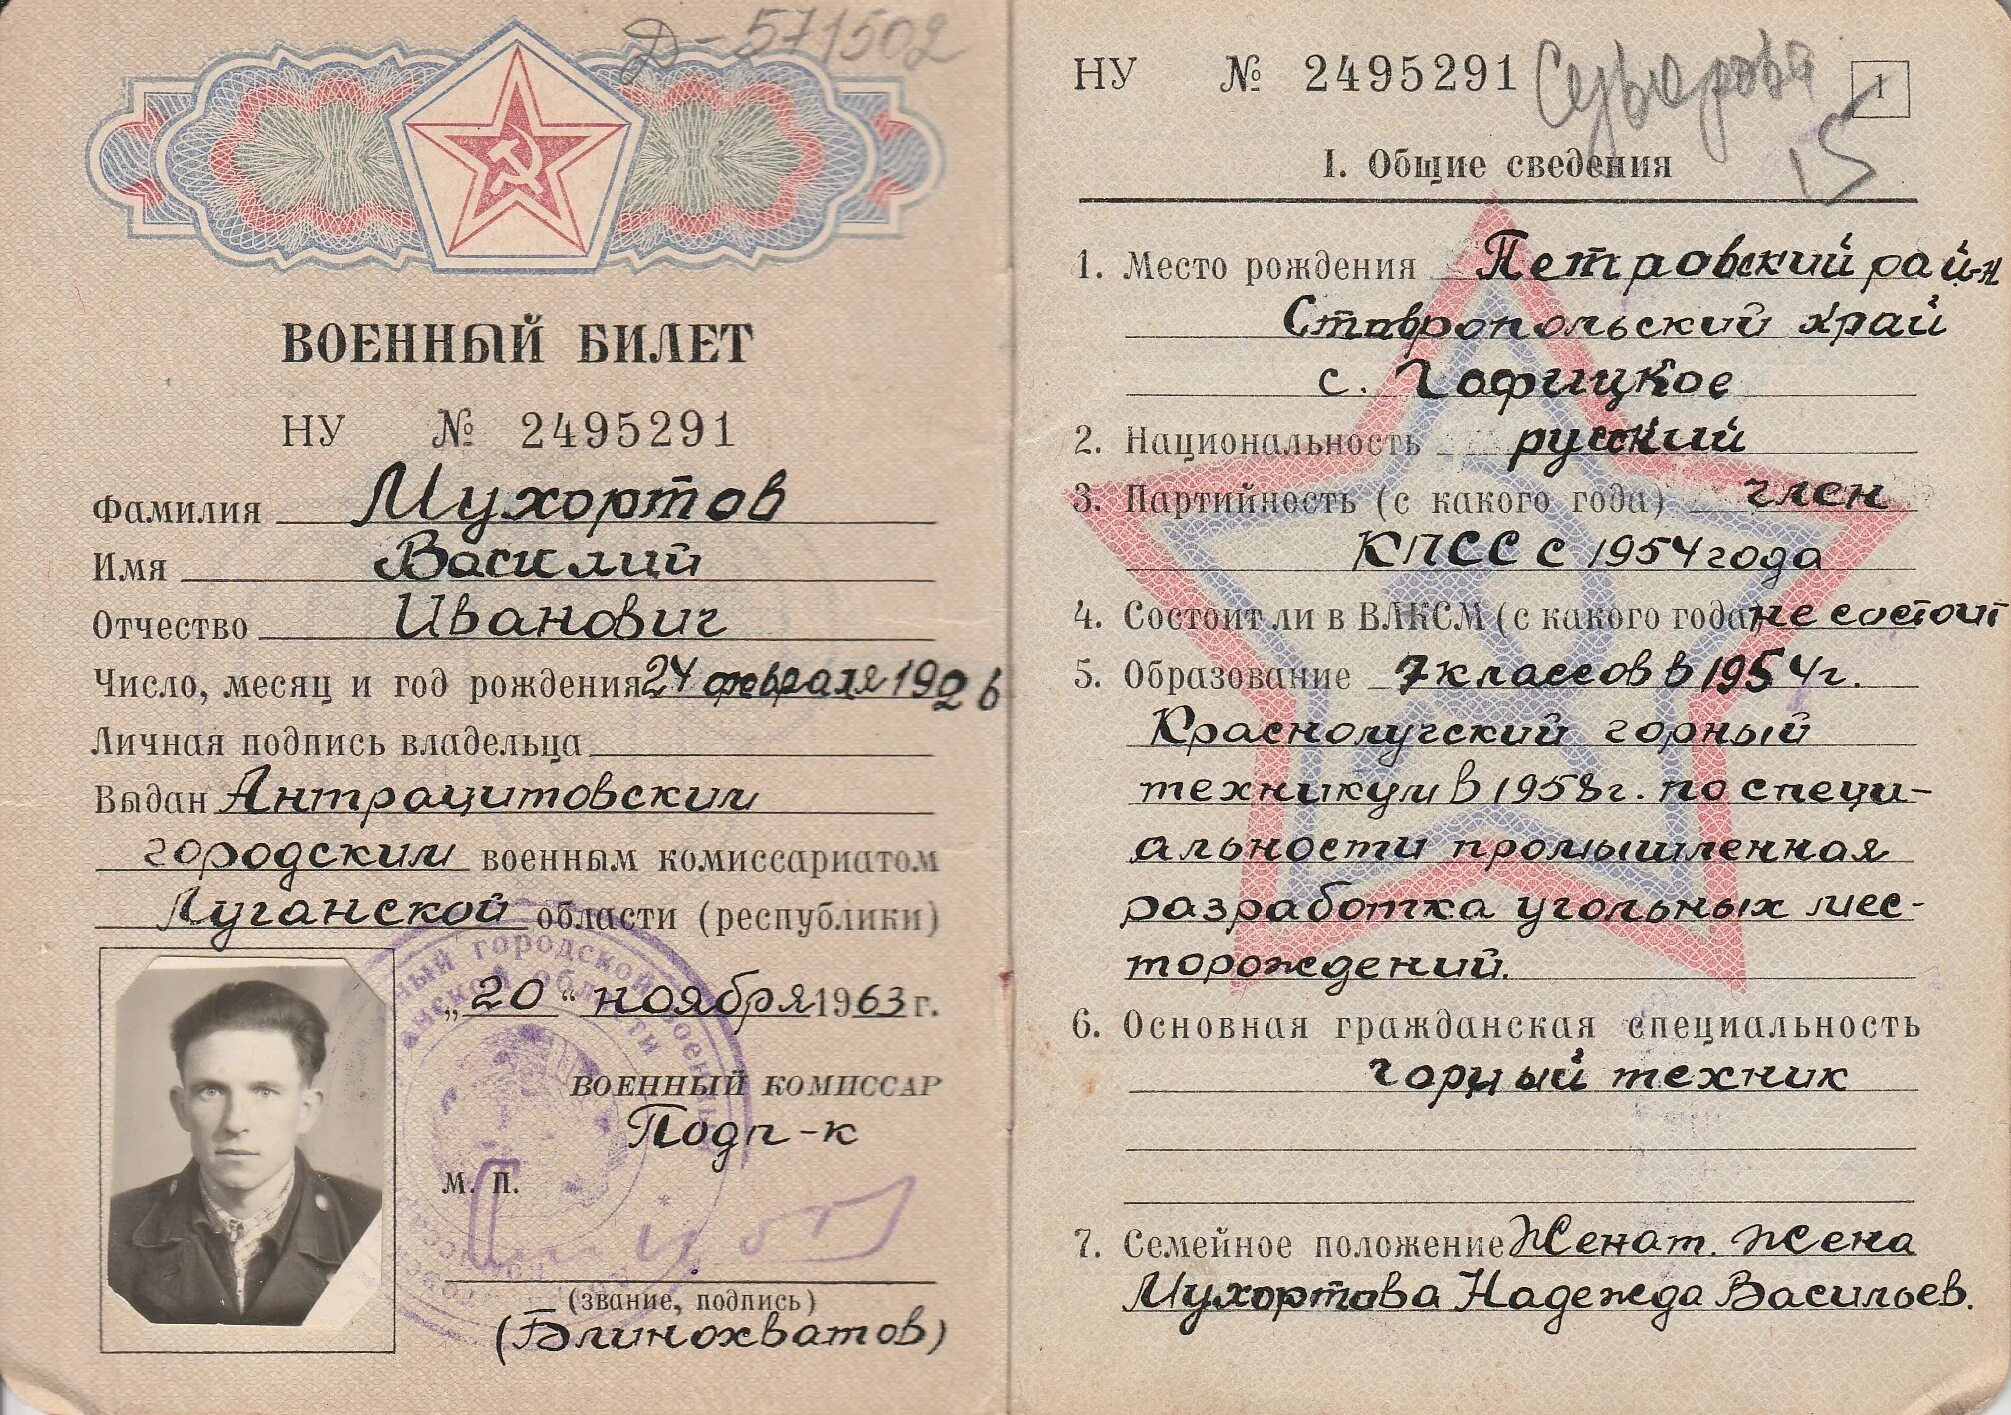 Д-571502
ВОЕННЫЙ БИЛЕТ
НУ № 2495291
Фамилия Мухортов
Имя Василий
Отчество Иванович
Число, месяц и год рождения 24 февраля 1926
Личная подпись владельца
Выдан Антрацитовским
городским военным комиссариатом
Луганской области (республики)
„20“ ноября 1963 г.
ВОЕННЫЙ КОМИССАР
Подп-к
М. П.
(звание, подпись)
(Блинохватов)
НУ № 2495291
1
15
I. Общие сведения
1. Место рождения Петровский рай-н
Ставропольский край
с. Гофицкое
2. Национальность русский
3. Партийность (с какого года) член
КПСС с 1954 года
4. Состоит ли в ВЛКСМ (с какого года) не состоит
5. Образование 7 классов в 1954г.
Краснолучский горный
техникум в 1958г. по специ-
альности промышленная
разработка угольных мес-
торождений.
6. Основная гражданская специальность
горный техник
7. Семейное положение Женат. Жена
Мухортова Надежда Васильев.